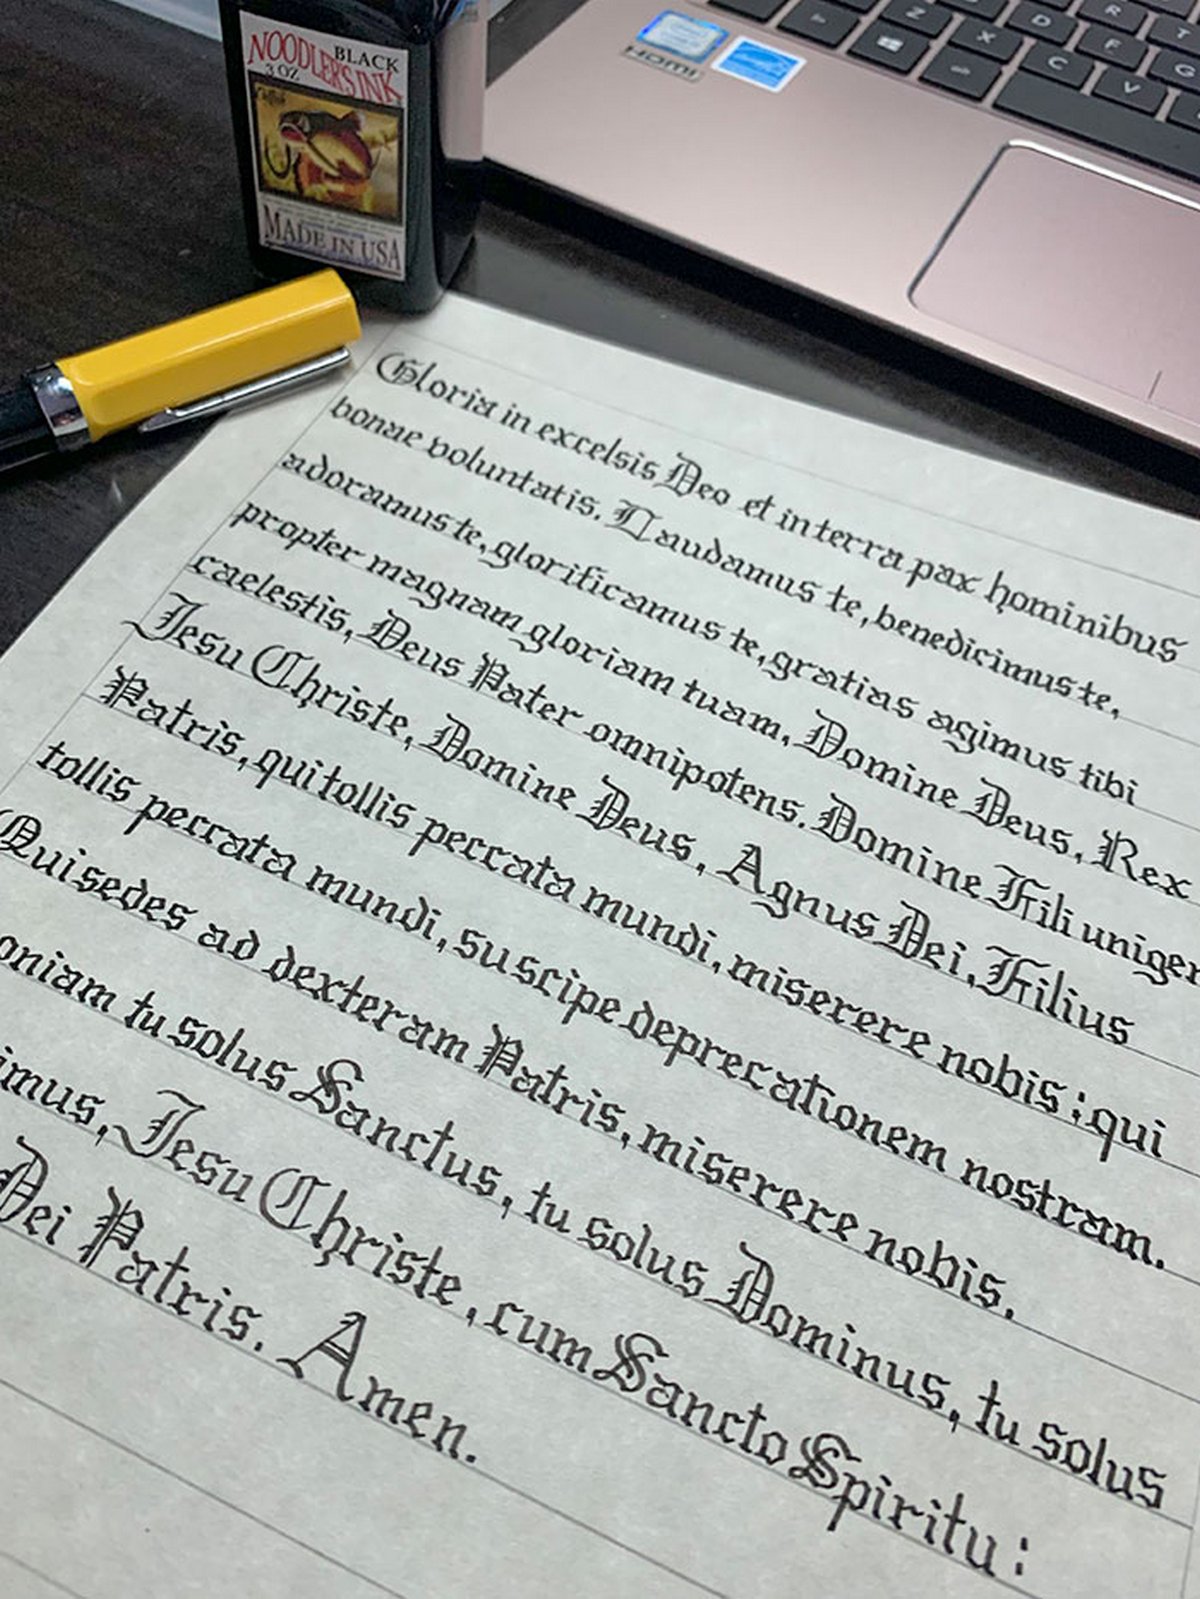 NOODLER'S INK
BLACK
3 OZ
MADE IN USA
HDMI
Z
X
C
V
D
F
R
T
G
Gloria in excelsis Deo et in terra pax hominibus
bonae voluntatis. Laudamus te, benedicimus te,
adoramus te, glorificamus te, gratias agimus tibi
propter magnam gloriam tuam, Domine Deus, Rex
caelestis, Deus Pater omnipotens. Domine Fili uniger
Jesu Christe, Domine Deus, Agnus Dei, Filius
Patris, qui tollis peccata mundi, miserere nobis; qui
tollis peccata mundi, suscipe deprecationem nostram.
Qui sedes ad dexteram Patris, miserere nobis.
oniam tu solus Sanctus, tu solus Dominus, tu solus
imus, Jesu Christe, cum Sancto Spiritu:
Dei Patris. Amen.